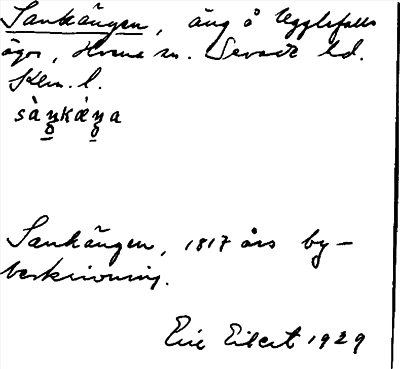 Sankängen, äng å Ugglefalls
ägor, Hvena sn. Sevede hd.
Klm. l.
sàŋkæ̀ŋa
Sankängen, 1817 års by-
beskrivning.
Eric Eilert 1929